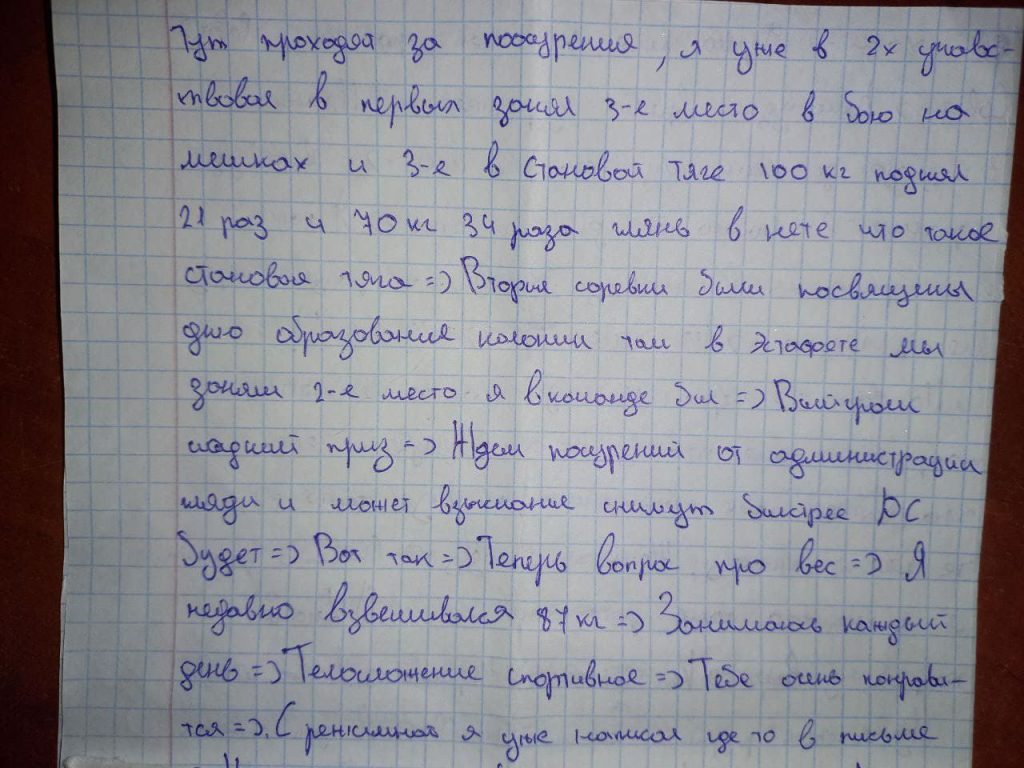 Тут проходят за поощрения, я уже в 2х учавс-
твовал в первых занял 3-е место в бою на
мешках и 3-е в Становой Тяге 100 кг поднял
21 раз и 70 кг 34 раза глянь в нете что такое
становая тяга =) Вторые соревн были посвящены
дню образования колонии там в Эстафете мы
заняли 2-е место я в команде был =) Выиграли
сладкий приз =) Ждем поощрений от администрации
гляди и может взыскание снимут быстрее ДС
будет =) Вот так =) Теперь вопрос про вес =) Я
недавно взвешивался 87 кг =) Занимаюсь каждый
день =) Телосложение спортивное =) Тебе очень понрави-
тся =). С я уже написал где то в письме